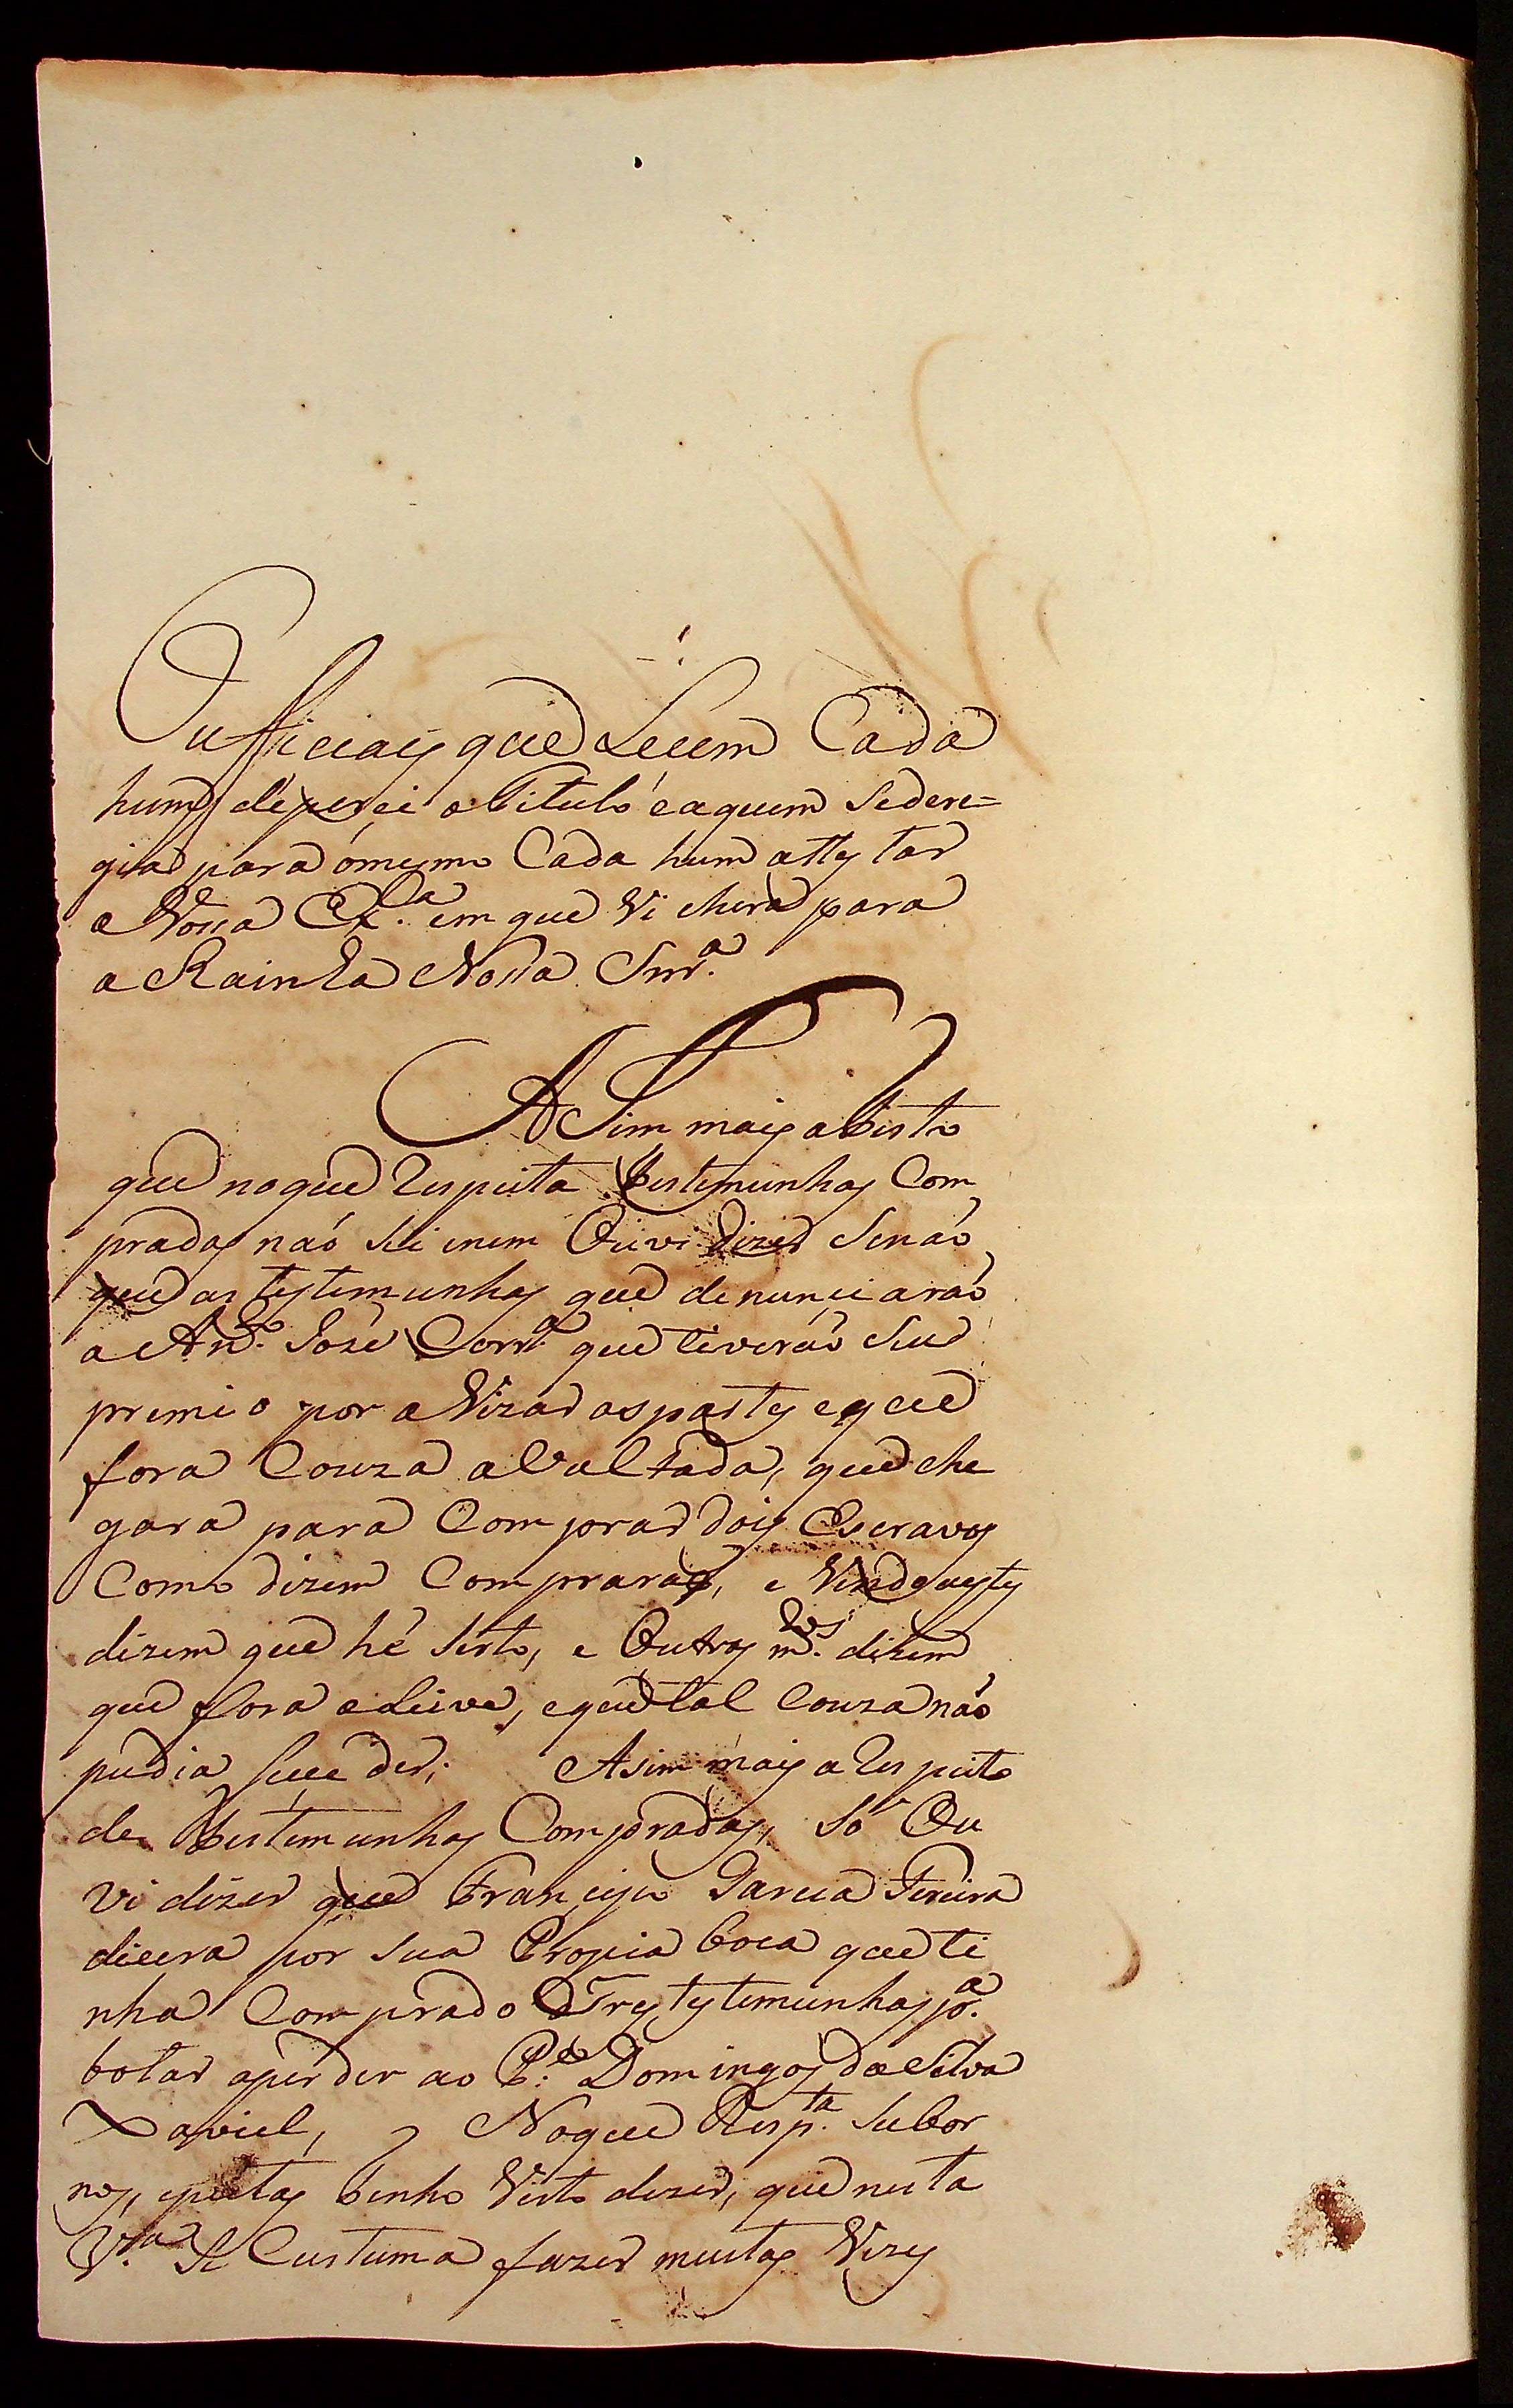 Oufficiais que Leem Cada
hum de persi o Titulo e aquem sedere=
giar para omesmo Cada hum attestar
a Vossa Ex.ca em que Vi chera para
a Rainha Nossa Snr.a
ASim mais atesto
que no que Respeita testemunhas Com
pradas não sei enem Ouvi dizer Senão
que as testemunhas que denunciarão
a An.to José Corr.a que tiverão Seu
premio por aVizar as partes e que
fora Couza aVultada, que che
gara para Comprar dois Escravos
Como dizem Comprarão, e Vindo estes
dizem que hé serto, e Outros m.tos dizem
que fora aleive, e que tal Couza não
pudia suceder; Asim mais a Respeito
de testemunhas Compradas, só Ou
vi dizer que Francisco Garcia Pereira
dicera por sua Propia boca que ti
nha Comprado Tres testemunhas p.a
botar aperder ao P.e Domingos da Silva
Xaviel, Noque Resp.ta Subor
nos, epeitas tenho Visto dizer, que nesta
V.a Se Custuma fazer muitas Vezes